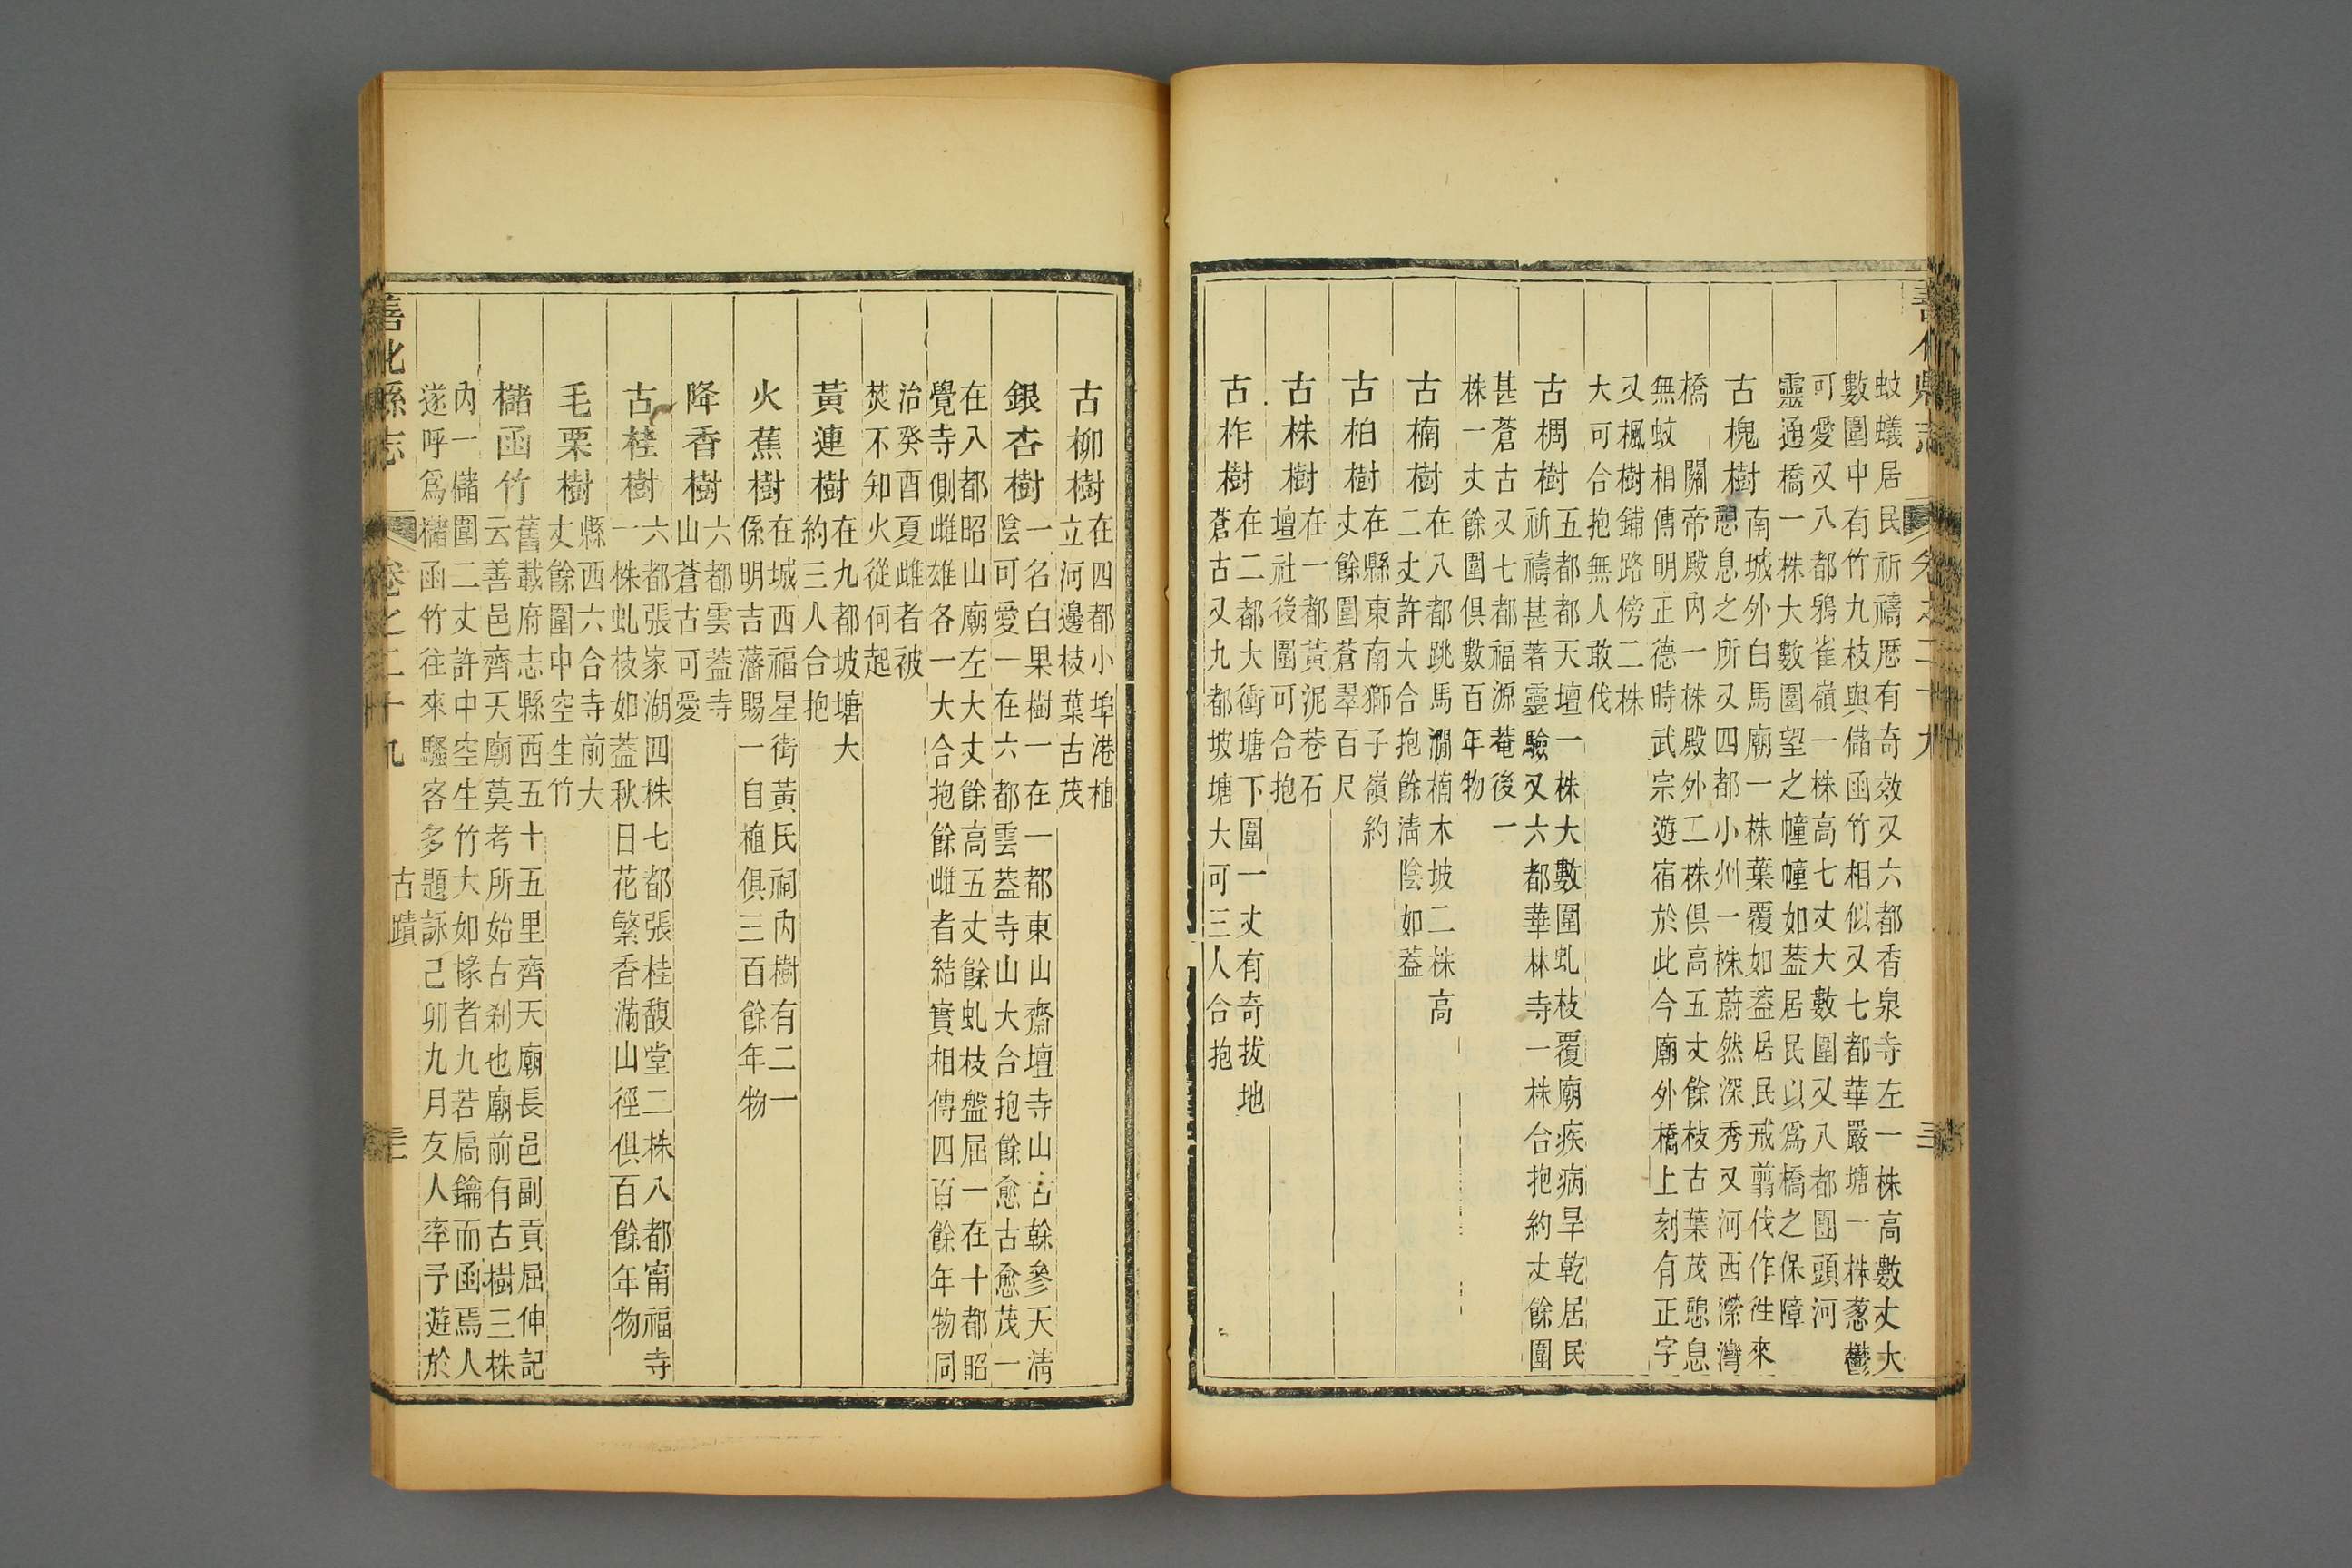 蚊蟻居民祈禱歷有奇效又六都香泉寺左一株高數丈大
數圍中有竹九枝與儲函竹相似又七都華嚴塘一株蔥鬱
可愛又八都鴉雀嶺一株高七丈大數圍又八都團頭河
靈通橋一株大數圍望之幢幢如蓋居民以為橋之保障
古槐樹
南城外白馬廟一株葉覆如蓋居民戒翦伐作徃來
憩息之所又四都小州一株蔚然深秀又河西濚灣
橋關帝殿內一株殿外二株俱高五丈餘枝古葉茂憩息
無蚊相傳明正德時武宗遊宿於此今廟外橋上刻有正字
又楓樹鋪路傍二株
大可合抱無人敢伐
古椆樹
五都都天壇一株大數圍虬枝覆廟疾病旱乾居民
祈禱甚著靈驗又六都華林寺一株合抱約丈餘圍
甚蒼古又七都福源菴後一
株一丈餘圍俱數百年物
古楠樹
在八都跳馬澗楠木坡二株高
二丈許大合抱餘清陰如蓋
古柏樹
在縣東南獅子嶺約
丈餘圍蒼翠百尺
古株樹
在一都黃泥巷石
壇社後圍可合抱
古柞樹
在二都大衝塘下圍一丈有奇拔地
蒼古又九都坡塘大可三人合抱
古柳樹
在四都小埠港柚
立河邊枝葉古茂
銀杏樹
一名白果樹一在一都東山齋壇寺山古榦參天清
陰可愛一在六都雲蓋寺山大合抱餘愈古愈茂一
在八都昭山廟左大丈餘高五丈餘虬枝盤屈一在十都昭
覺寺側雌雄各一大合抱餘雌者結實相傳四百餘年物同
治癸酉夏雌者被
焚不知火從何起
黃連樹
在九都坡塘大
約三人合抱
火蕉樹
在城西福星街黃氏祠內樹有二一
係明吉藩賜一自植俱三百餘年物
降香樹
六都雲蓋寺
山蒼古可愛
古桂樹
六都張家湖四株七都張桂馥堂二株八都甯福寺
一株虬枝如蓋秋日花繁香滿山徑俱百餘年物
毛栗樹
縣西六合寺前大
丈餘圍中空生竹
櫧函竹
舊載府志縣西五十五里齊天廟長邑副貢屈伸記
云善邑齊天廟莫考所始古剎也廟前有古樹三株
內一儲圍二丈許中空生竹大如椽者九若扃鑰而函焉人
遂呼為櫧函竹往來騷客多題詠己卯九月友人率予遊於
善化縣志
卷之二十九
古蹟